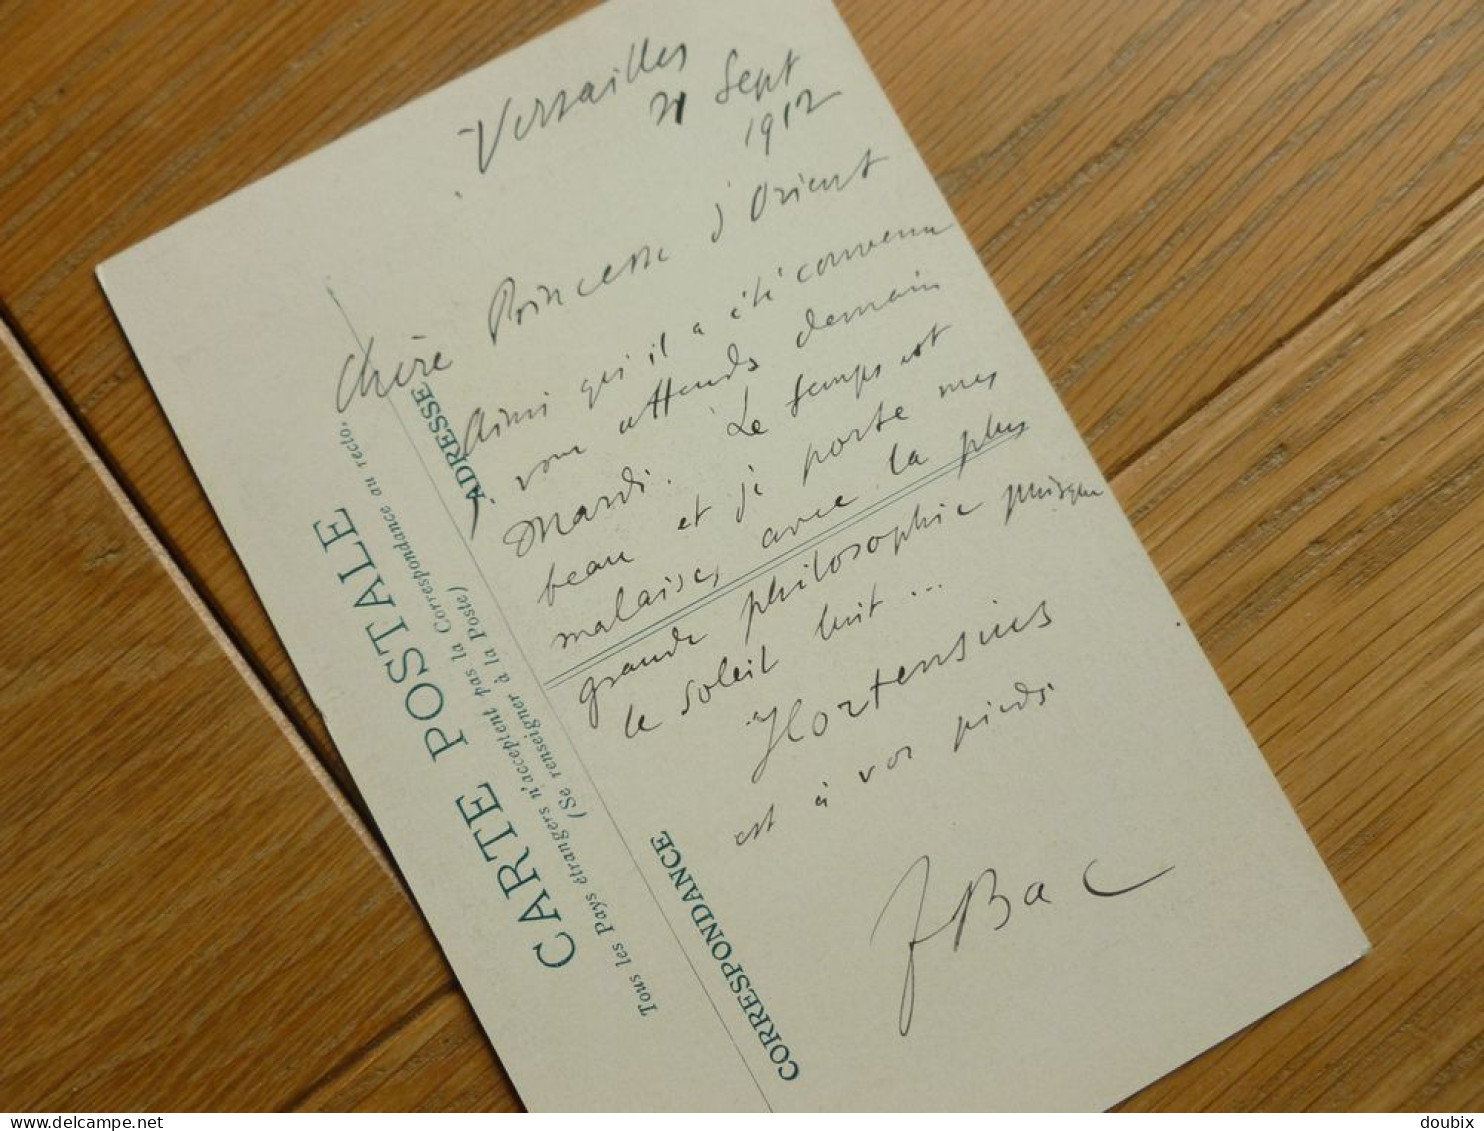 Versailles
21 Sept
1912
Chère Princesse d'Orient
Ainsi qu'il a été convenu
j. vous attends demain
Mardi. Le temps est
beau et je porte mes
malaises, avec la plus
grande philosophie puisque
le soleil luit...
Hortensius
est à vos pieds
FBac
CARTE POSTALE
Tous les Pays étrangers n'acceptent pas la Correspondance au recto.
(Se renseigner à la Poste)
CORRESPONDANCE
ADRESSE
doubix